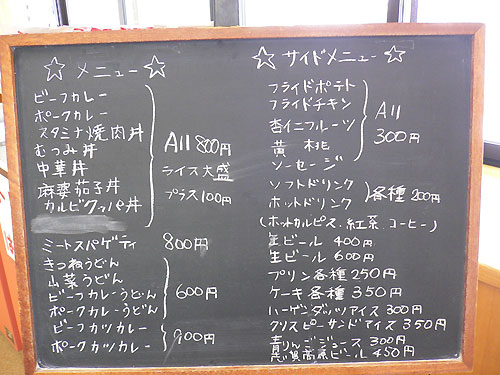 ☆ メニュー ☆
ビーフカレー
ポークカレー
スタミナ焼肉丼
むつみ丼
中華丼
麻婆茄子丼
カルビクッパ丼
All 800円
ライス大盛
プラス100円
ミートスパゲティ 800円
きつねうどん
山菜うどん
ビーフカレーうどん
ポークカレーうどん
600円
ビーフカツカレー
ポークカツカレー
900円
☆ サイドメニュー ☆
フライドポテト
フライドチキン
杏仁フルーツ
黄桃
ソーセージ
All
300円
ソフトドリンク
ホットドリンク
各種200円
(ホットカルピス、紅茶、コーヒー)
缶ビール 400円
生ビール 600円
プリン各種250円
ケーキ各種350円
ハーゲンダッツアイス300円
クリスピーサンドアイス350円
青りんごジュース300円
志賀高原ビール450円